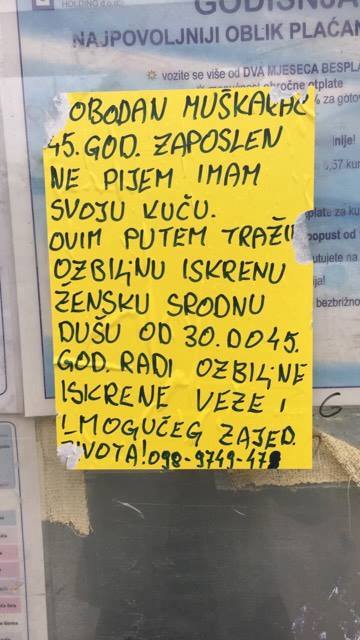 HOLDING d.o.o.
GODIŠNJA
NAJPOVOLJNIJI OBLIK PLAĆAN
vozite se više od DVA MJESECA BESPLA
obročne otplate
% za gotov
OBODAN MUŠKARAC
45. GOD. ZAPOSLEN
NE PIJEM IMAM
SVOJU KUČU.
OVIM PUTEM TRAŽI
OZBILJNU ISKRENU
ŽENSKU SRODNU
DUŠU OD 30. DO 45.
GOD. RADI OZBILJNE
ISKRENE VEZE I
MOGUČEG ZAJED.
ŽIVOTA! 098-9749-478
nije!
,57 kuna
plate za ku
popust od
utujete na
ija!
bezbrižno